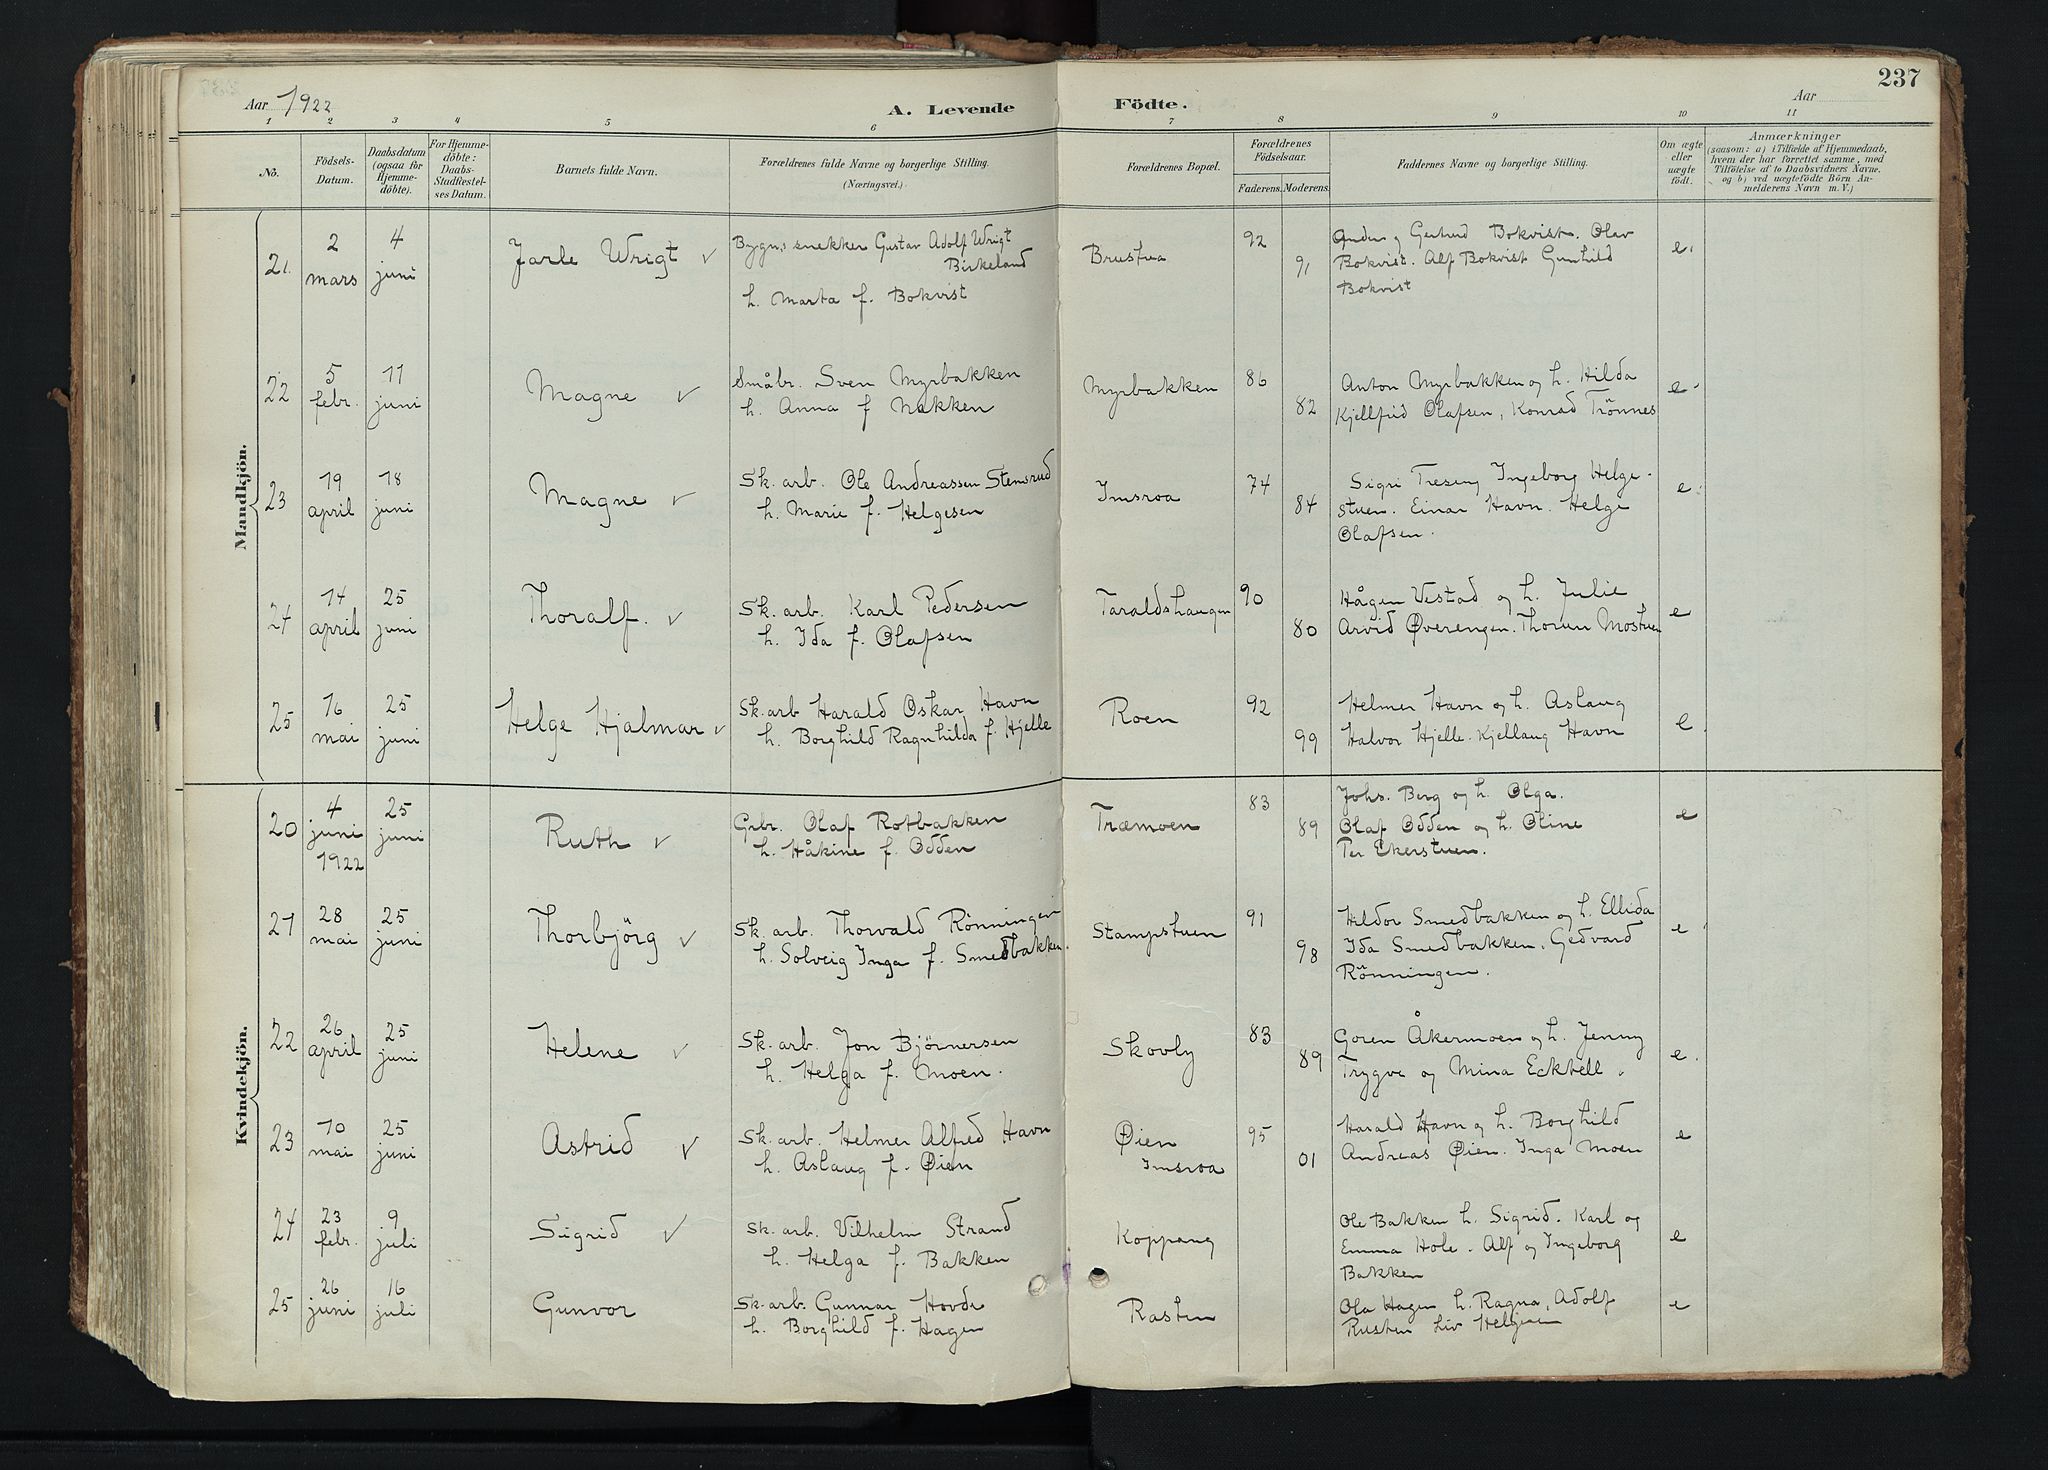 237
Aar 1922
A. Levende Födte.
Aar
1 2 3 4 5 6 7 8 9 10 11
No.
Födsels-
Datum.
Daabsdatum
(ogsaa for
Hjemme-
döbte).
For Hjemme-
döbte:
Daabs-
Stadfæstel-
ses Datum.
Barnets fulde Navn.
Forældrenes fulde Navne og borgerlige Stilling.
(Næringsvei.)
Forældrenes Bopæl.
Forældrenes
Födselsaar.
Faderens. Moderens.
Faddernes Navne og borgerlige Stilling.
Om ægte
eller
uægte
födt.
Anmærkninger
(saasom: a) i Tilfælde af Hjemmedaab,
hvem der har forrettet samme, med
Tilföielse af to Daabsvidners Navne,
og b) ved uægtefödte Börn An-
melderens Navn m. V.)
Mandkjön.
21. 2 mars 4 juni Jarle Wrigt ✓
Bygn.s snekker Gustav Adolf Wrigt
Birkeland
h. Marta f. Bokvist
Brustua 92 91
Anders og Gertrud Bokvist. Olav
Bokvist. Alf Bokvist Gunhild
Bokvist
e.
22 5 febr. 11 juni Magne ✓
Småbr. Sven Myrbakken
h. Anna f Nakken
Myrbakken 86 82
Anton Myrbakken og h. Hilda
Kjellfrid Olafsen, Konrad Trönnes
e
23 19 april 18 juni Magne ✓
Sk. arb. Ole Andreassen Stensrud
h. Marie f. Helgesen
Imsroa 74 84
Sigri Ingeborg Helge-
stuen. Einar Havn. Helge
Olafsen.
e
24 14 april 25 juni Thoralf. ✓
Sk. arb. Karl Pedersen
h. Ida f. Olafsen
Taraldshaugen 90 80
Hågen Vestad og h. Julie
Arvid Øverengen. Thorun Mostuen
e
25 16 mai 25 juni Helge Hjalmar ✓
Sk. arb Harald Oskar Havn
h. Borghild Ragnhilda f. Hjelle
Roen 92 99
Helmer Havn og h. Aslaug
Halvor Hjelle. Kjellaug Havn
e
Kvindekjön.
20 4 juni 1922 25 juni Ruth ✓
Grbr. Olaf Rotbakken
h. Håkine f. Odden
Træmoen 83 89
Johs. Berg og h. Olga.
Olaf Odden og h. Oline
Per Ekerstuen.
e
21 28 mai 25 juni Thorbjörg ✓
Sk. arb. Thorvald Rönningen
h. Solveig Inga f. Smedbakken.
Stampstuen 91 98
Hildor Smedbakken og h. Ellida
Ida Smedbakken. Gedvard
Rönningen.
e
22 26 april 25 juni Helene ✓
Sk. arb. Jon Björnersen
h. Helga f. Moen.
Skovly 83 89
Goren Åkermoen og h. Jenny
Trygve og Mina Eckhell.
e.
23 10 mai 25 juni Astrid ✓
Sk. arb. Helmer Alfred Havn
h. Aslaug f. Øien
Øien
Imsroa
95 01
Harald Havn og h. Borghild
Andreas Øien. Inga Moen
e
24 23 febr. 9 juli Sigrid ✓
Sk. arb. Vilhelm Strand
h. Helga f. Bakken
Koppang
Ole Bakken h. Sigrid. Karl og
Emma Hole. Alf og Ingeborg
Bakken
e
25 26 juni 16 juli Gunvor
Sk. arb. Gunnar Hovde
h. Borghild f. Hagen
Rasten
Ola Hagen h. Ragna, Adolf
Rusten Liv
e